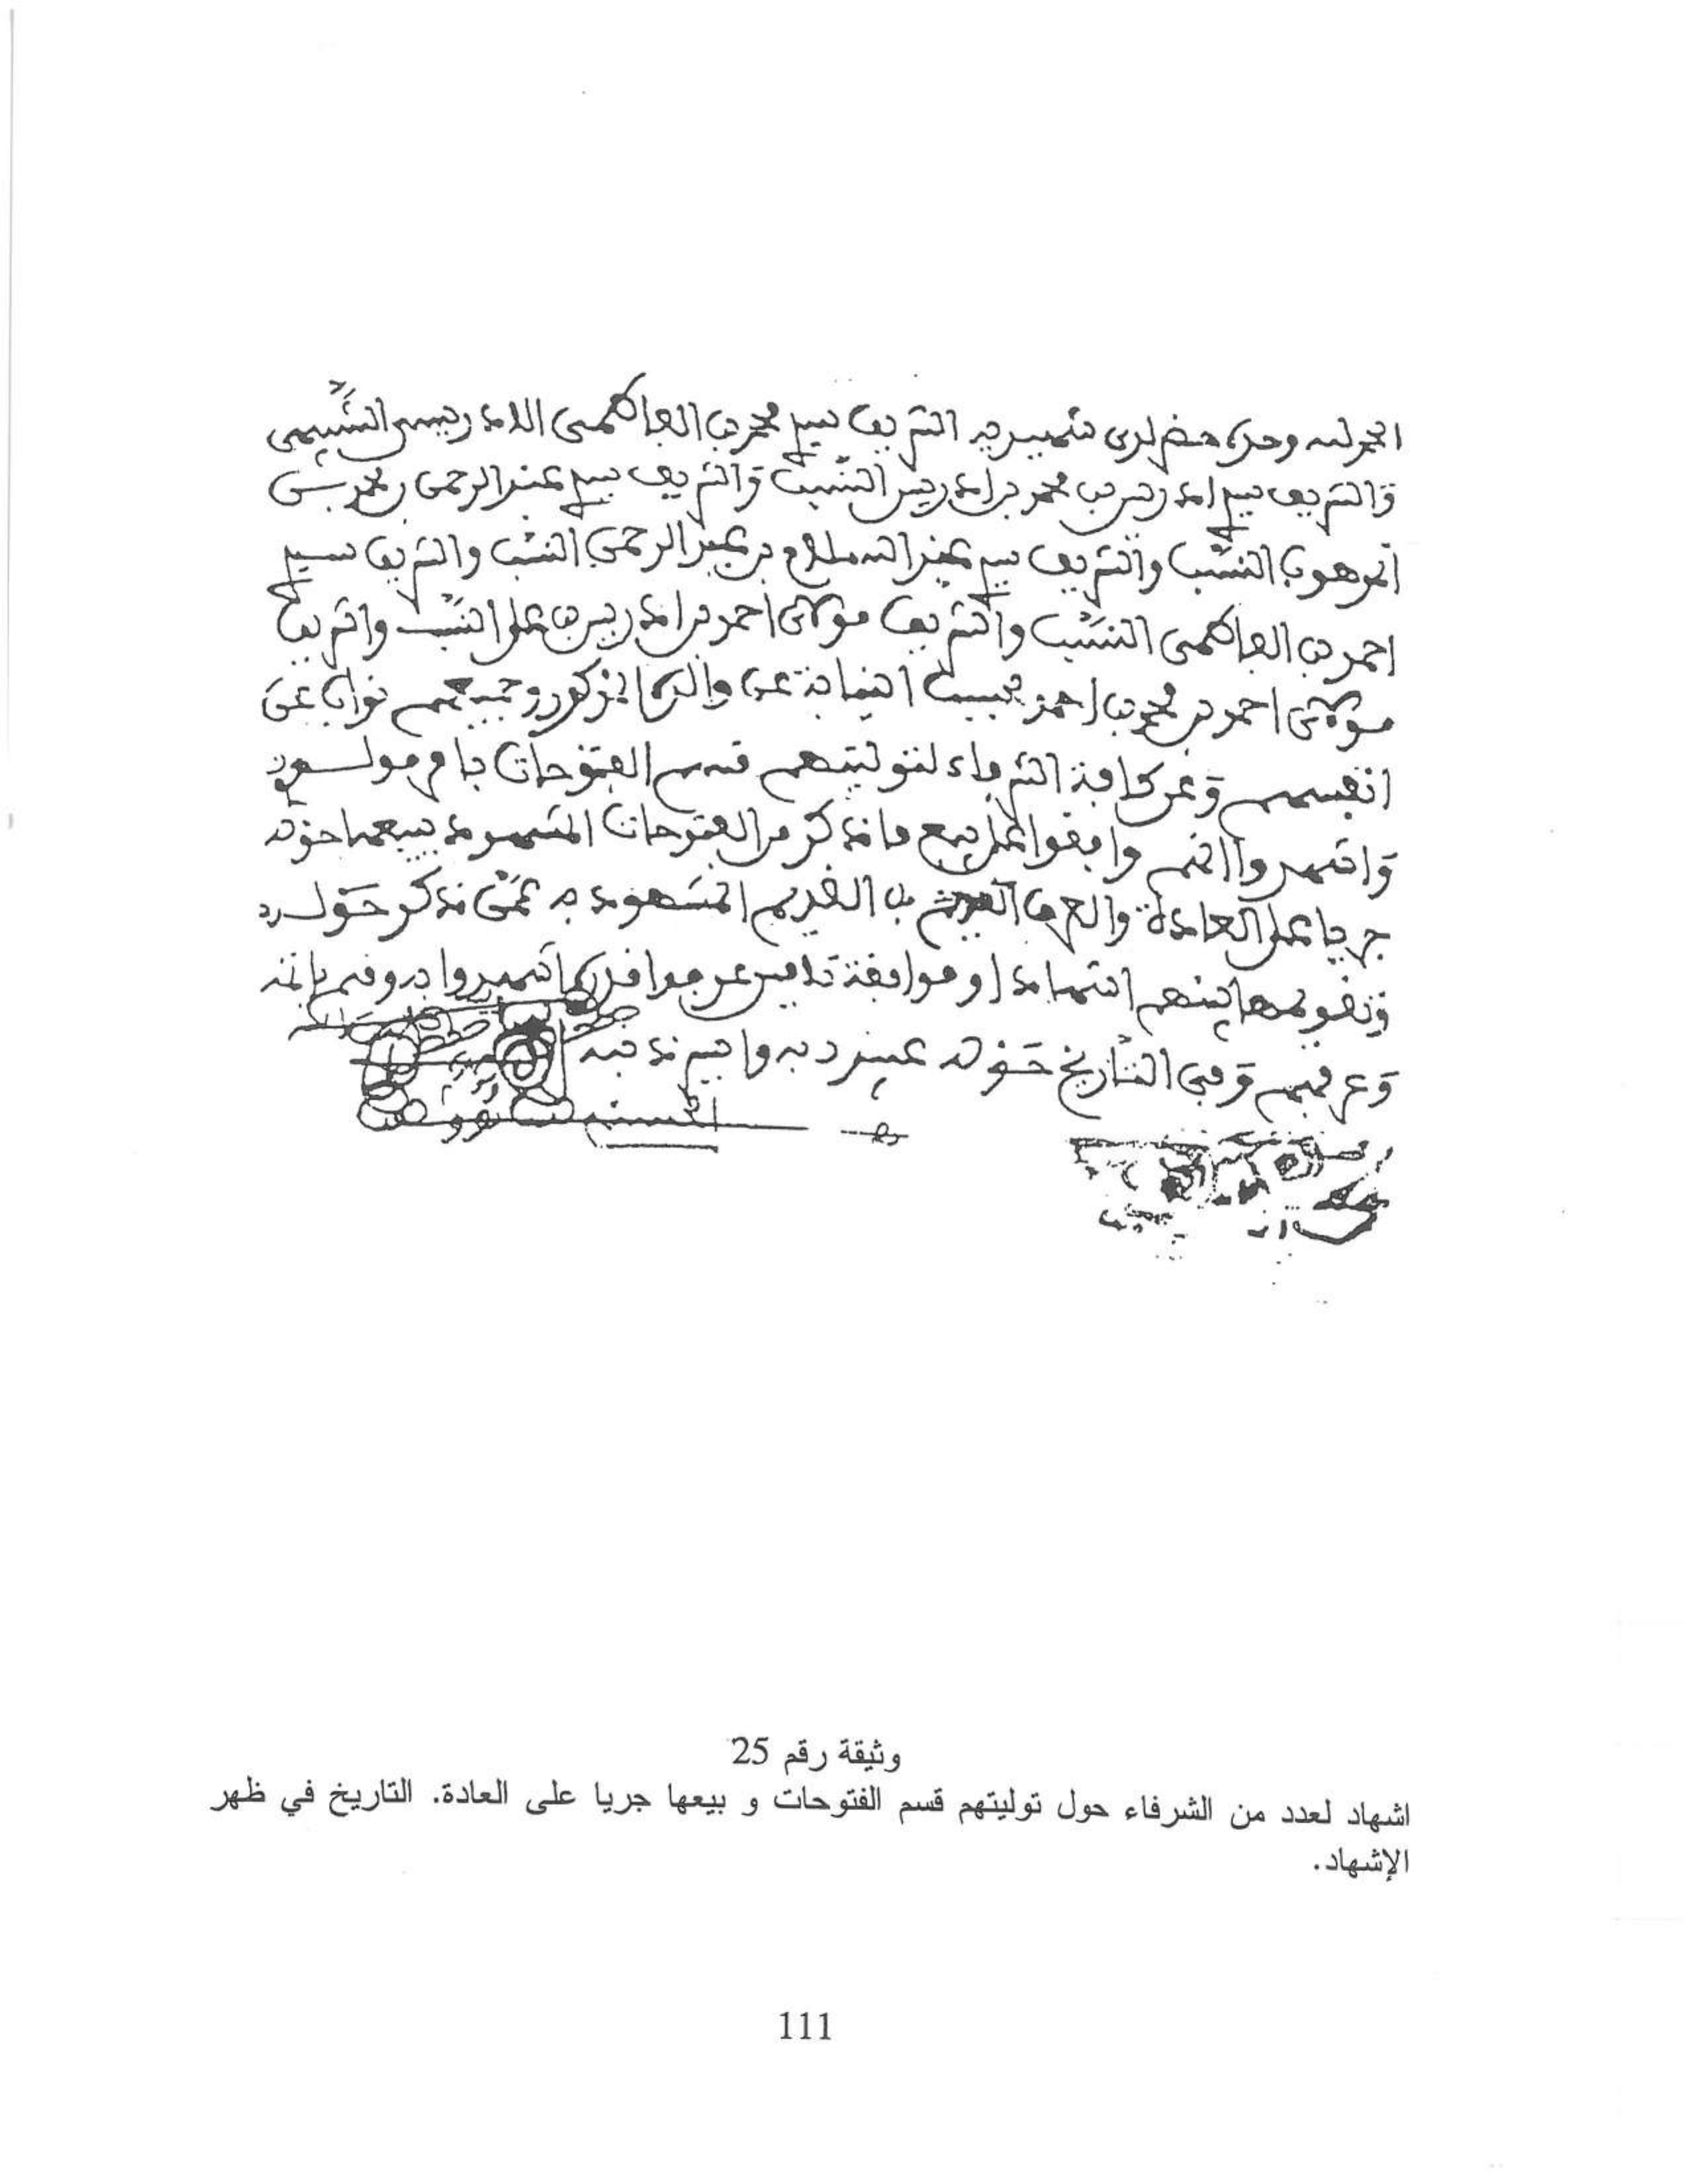 الحمد لله وحده حضر لدى شهيديه الشريف سيدي محمد بن الهاشمي الادريسي النسب
والشريف سيدي ادريس بن محمد بن ادريس النسب والشريف سيدي عبد الرحمن بن محمد
النسب والشريف سيدي عبد السلام بن عبد الرحمن النسب والشريف سيدي
احمد بن الهاشمي النسب والشريف مولاي احمد بن ادريس بن علي النسب والشريف
مولاي احمد بن محمد بن احمد النيابة عن والده المذكور وجميعهم نواب عن
انفسهم وعن كافة الشرفاء لتوليتهم قسم الفتوحات بامر مولوي
واشهدوا انهم وافقوا على بيع ما ذكر من الفتوحات المشهود ببيعها حوله
جريا على العادة والعرف القديم المشهود به عمن ذكر حوله
وتقويمها بينهم اشهادا وموافقة تامين عرفوا قدره اشهدوا به وهم باتمه
وعرفهم وفي التاريخ حوله عبد ربه
وثيقة رقم 25
اشهاد لعدد من الشرفاء حول توليتهم قسم الفتوحات و بيعها جريا على العادة. التاريخ في ظهر
الإشهاد.
111